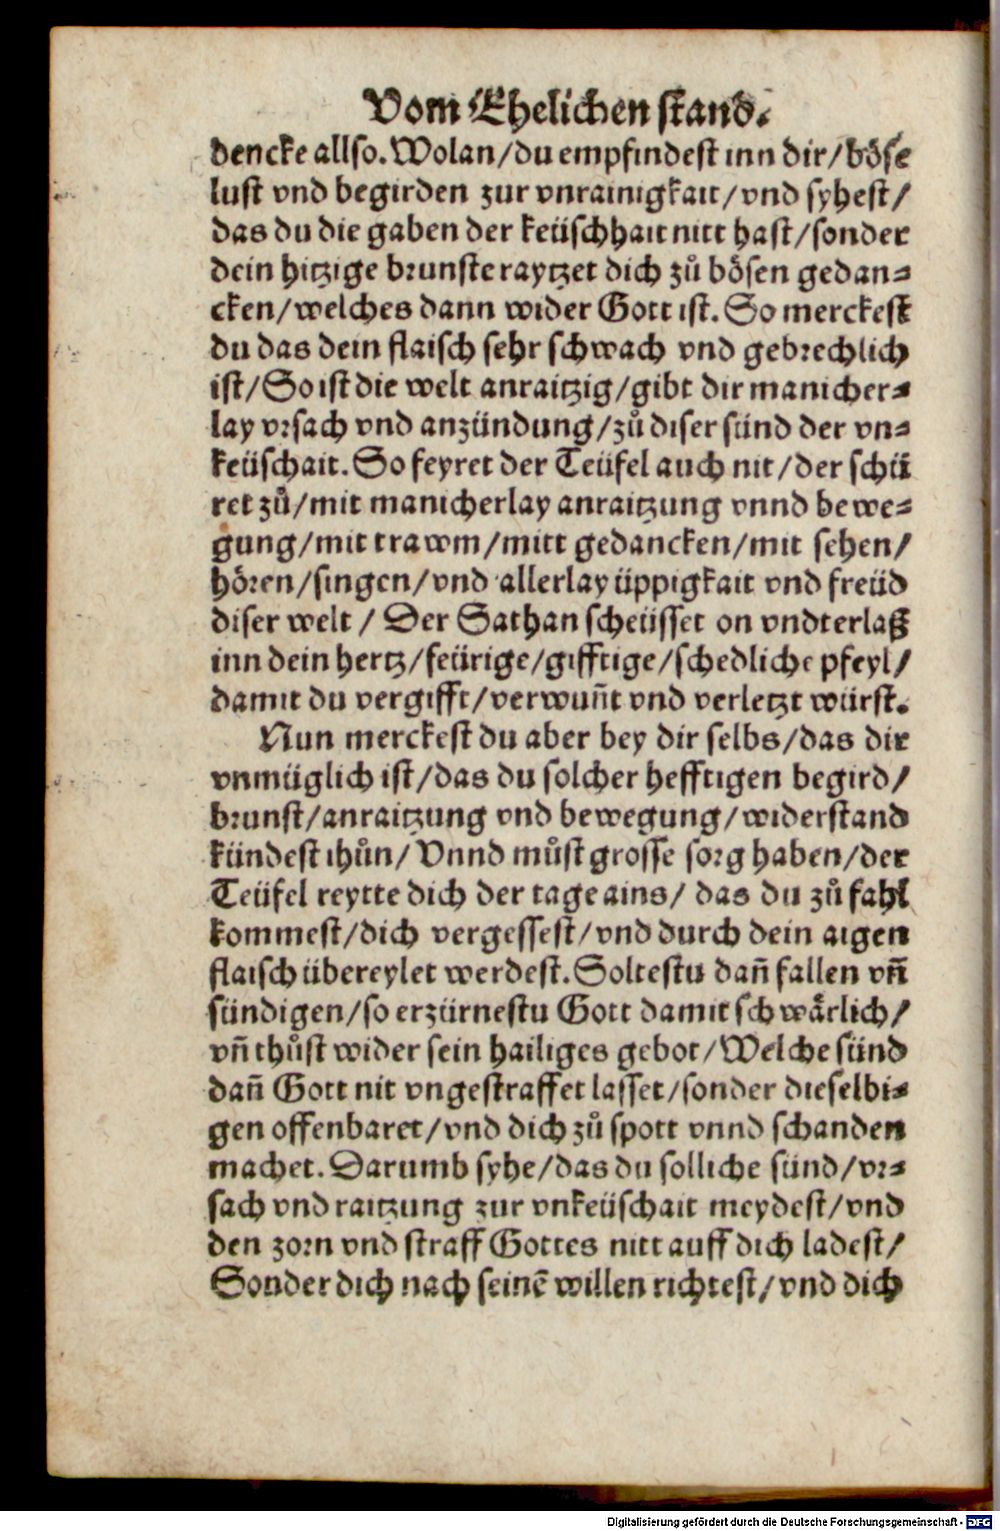 Vom Ehelichen stand.
dencke allso. Wolan/du empfindest inn dir/böse
lust vnd begirden zur vnrainigkait/vnd syhest/
das du die gaben der keüschhait nitt hast/sonder
dein hitzige brunste raytzet dich zů bösen gedan-
cken/welches dann wider Gott ist. So merckest
du das dein flaisch sehr schwach vnd gebrechlich
ist/So ist die welt anraitzig/gibt dir manicher-
lay vrsach vnd anzündung/zů diser sünd der vn-
keüschait. So feyret der Teüfel auch nit/der schü
ret zů/mit manicherlay anraitzung vnnd bewe-
gung/mit trawm/mitt gedancken/mit sehen/
hören/singen/vnd allerlay üppigkait vnd freüd
diser welt / Der Sathan scheüsset on vndterlaß
inn dein hertz/feürige/gifftige/schedliche pfeyl/
damit du vergifft/verwun̄t vnd verletzt würst.
Nun merckest du aber bey dir selbs/das dir
vnmüglich ist/das du solcher hefftigen begird/
brunst/anraitzung vnd bewegung/widerstand
kündest thůn/ Vnnd můst grosse sorg haben/der
Teüfel reytte dich der tage ains/ das du zů fahl
kommest/dich vergessest/vnd durch dein aigen
flaisch übereylet werdest. Soltestu dan̄ fallen vn̄
sündigen/so erzürnestu Gott damit schwärlich/
vn̄ thůst wider sein hailiges gebot/Welche sünd
dan̄ Gott nit vngestraffet lasset/sonder dieselbi-
gen offenbaret/vnd dich zů spott vnnd schanden
machet. Darumb syhe/das du solliche sünd/vr-
sach vnd raitzung zur vnkeüschait meydest/vnd
den zorn vnd straff Gottes nitt auff dich ladest/
Sonder dich nach seinē willen richtest/vnd dich
Digitalisierung gefördert durch die Deutsche Forschungsgemeinschaft - DFG